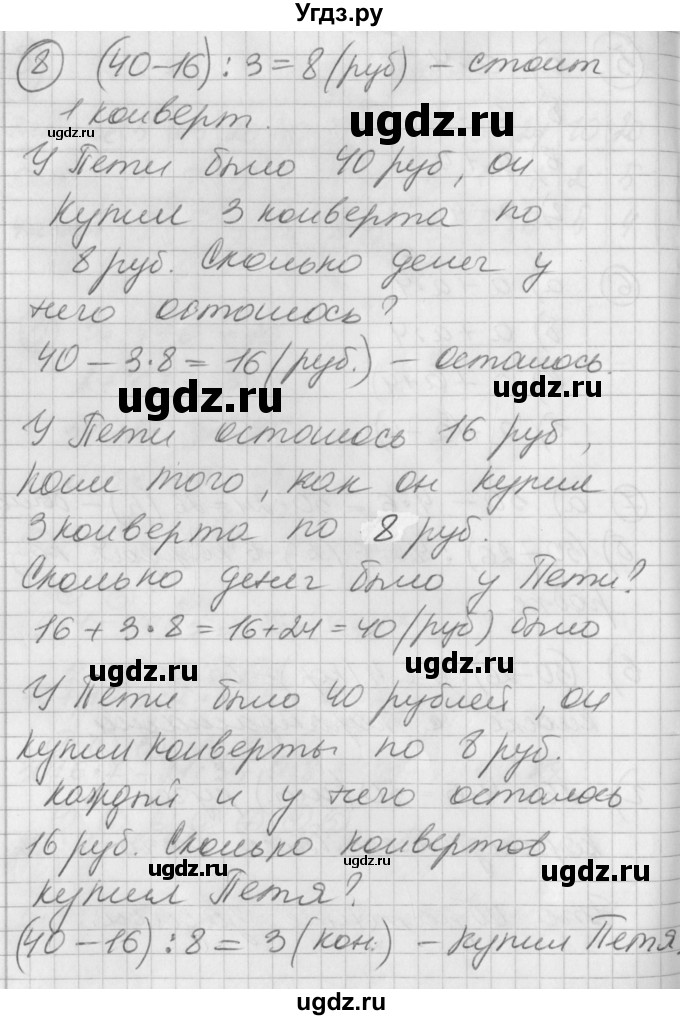 Угдз.ру
8 (40-16) : 3 = 8 (руб) - стоит
1 конверт.
ugdz.ru
ugdz.ru
У Пети было 40 руб, он
купил 3 конверта по
8 руб. Сколько денег у
него осталось?
40 - 3·8 = 16 (руб.) - осталось.
ugdz.ru
ugdz.ru
У Пети осталось 16 руб,
после того, как он купил
3 конверта по 8 руб.
Сколько денег было у Пети?
16 + 3·8 = 16+24 = 40 (руб) было
ugdz.ru
ugdz.ru
У Пети было 40 рублей, он
купил конверты по 8 руб.
каждый и у него осталось
16 руб. Сколько конвертов
ugdz.ru
ugdz.ru
купил Петя?
(40-16) : 8 = 3 (кон.) - купил Петя.
ugdz.ru